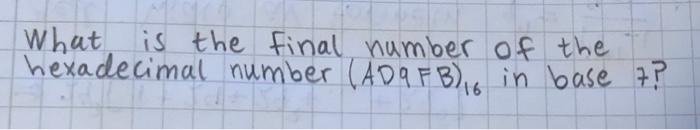 What is the final number of the
hexadecimal number (AD9FB)₁₆ in base 7?